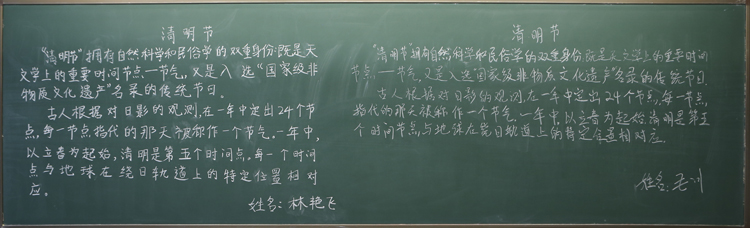 清明节
“清明节”拥有自然科学和民俗学的双重身份：既是天
文学上的重要时间节点—节气，又是入选“国家级非
物质文化遗产”名录的传统节日。
古人根据对日影的观测，在一年中定出24个节
点，每一节点指代的那天被称作一个节气。一年中，
以立春为起始，清明是第五个时间点。每一个时间
点与地球在绕日轨道上的特定位置相对
应。
姓名：林艳飞
清明节
“清明节”拥有自然科学和民俗学的双重身份：既是天文学上的重要时间
节点—节气，又是入选“国家级非物质文化遗产”名录的传统节日。
古人根据对日影的观测，在一年中定出24个节点，每一节点
指代的那天被称作一个节气。一年中，以立春为起始，清明是第五
个时间节点，与地球在绕日轨道上的特定位置相对应。
姓名：